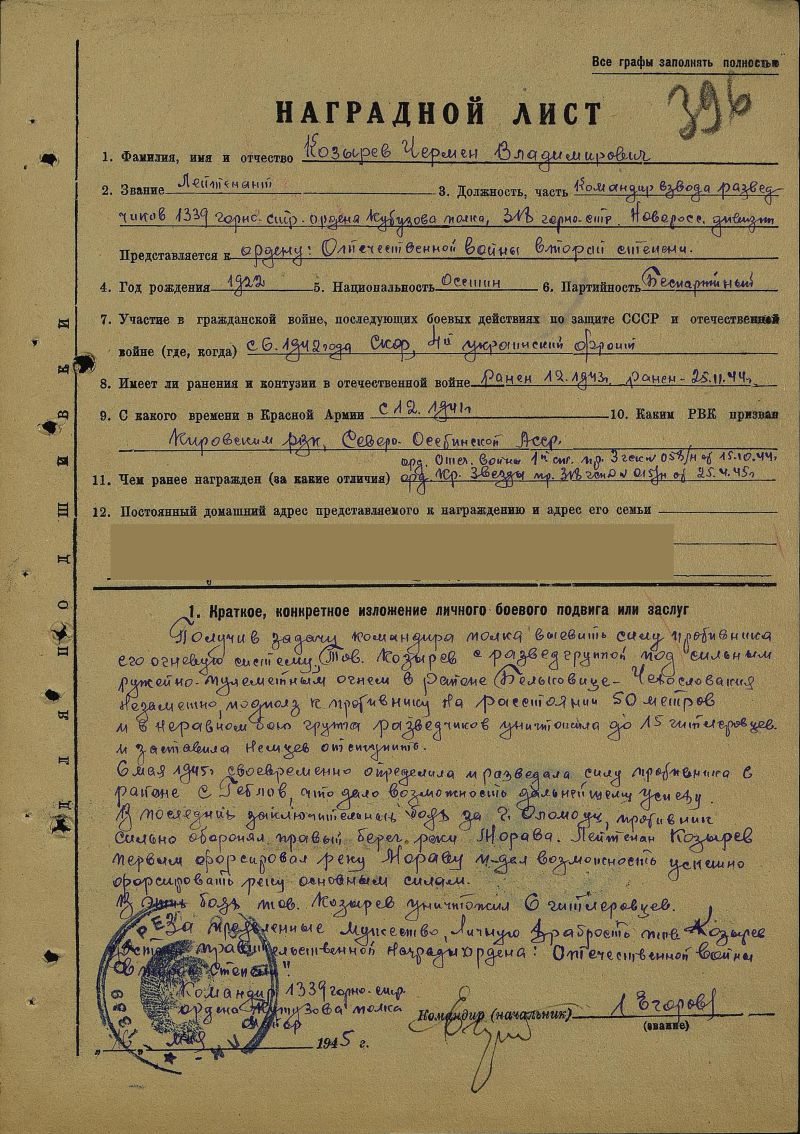 Все графы заполнять полностью
396
НАГРАДНОЙ ЛИСТ
1. Фамилия, имя и отчество Козырев Чермен Владимирович
2. Звание Лейтенант 3. Должность, часть Командир взвода развед
чиков 1339 горно-стр. ордена Кутузова полка, 318 горно-стр. Новоросс. дивизии
Представляется к ордену: Отечественной войны второй степени.
4. Год рождения 1922 5. Национальность Осетин 6. Партийность Беспартийный
7. Участие в гражданской войне, последующих боевых действиях по защите СССР и отечественной
войне (где, когда) с 6. 1942 года 4й украинский фронт
8. Имеет ли ранения и контузии в отечественной войне Ранен 12.1943г. ранен - 25.11.44г.
9. С какого времени в Красной Армии с 12. 1941г 10. Каким РВК призван
Кировским рвк, Северо-Осетинской Асср.
орд. Отеч. войны 1й ст. пр. 3 гск № 058/н от 15.10.44г.
11. Чем ранее награжден (за какие отличия) орд. Кр. Звезды пр. 318 гсд № 015/н от 25.4.45г
12. Постоянный домашний адрес представляемого к награждению и адрес его семьи
ДЛЯ ПОДШИВКИ
1. Краткое, конкретное изложение личного боевого подвига или заслуг
Получив задачу командира полка выевить силу противника
его огневую систему, Тов. Козырев с разведгруппой под сильным
ружейно-пулеметным огнем в районе Бельковице - Чехославакия
незаметно, подполз к противнику на расстоянии 50 метров
и в неравном бою группа разведчиков уничтожила до 15 гитлеровцев
и заставила немцев отступить.
6 мая 1945г своевременно определила и разведала силу противника в
районе с. Геблов, что дало возможность дальнейшему успеху.
В последних заключительных боях за г. Оломоуц, противник
сильно оборонял правый берег реки Морава. Лейтенан Козырев
первым форсировал реку Мораву и дал возможность успешно
форсировать реку основным силам.
В этих боях тов. Козырев уничтожил 6 гитлеровцев.
За проявленные мужество, личную храбрость тов. Козырев
достоин правительственной награды ордена: Отечественной войны
второй степени"
Командир 1339 горно-стр.
ордена Кутузова полка
майор
Командир (начальник) Егоров
(звание)
мая 1945 г.
1339